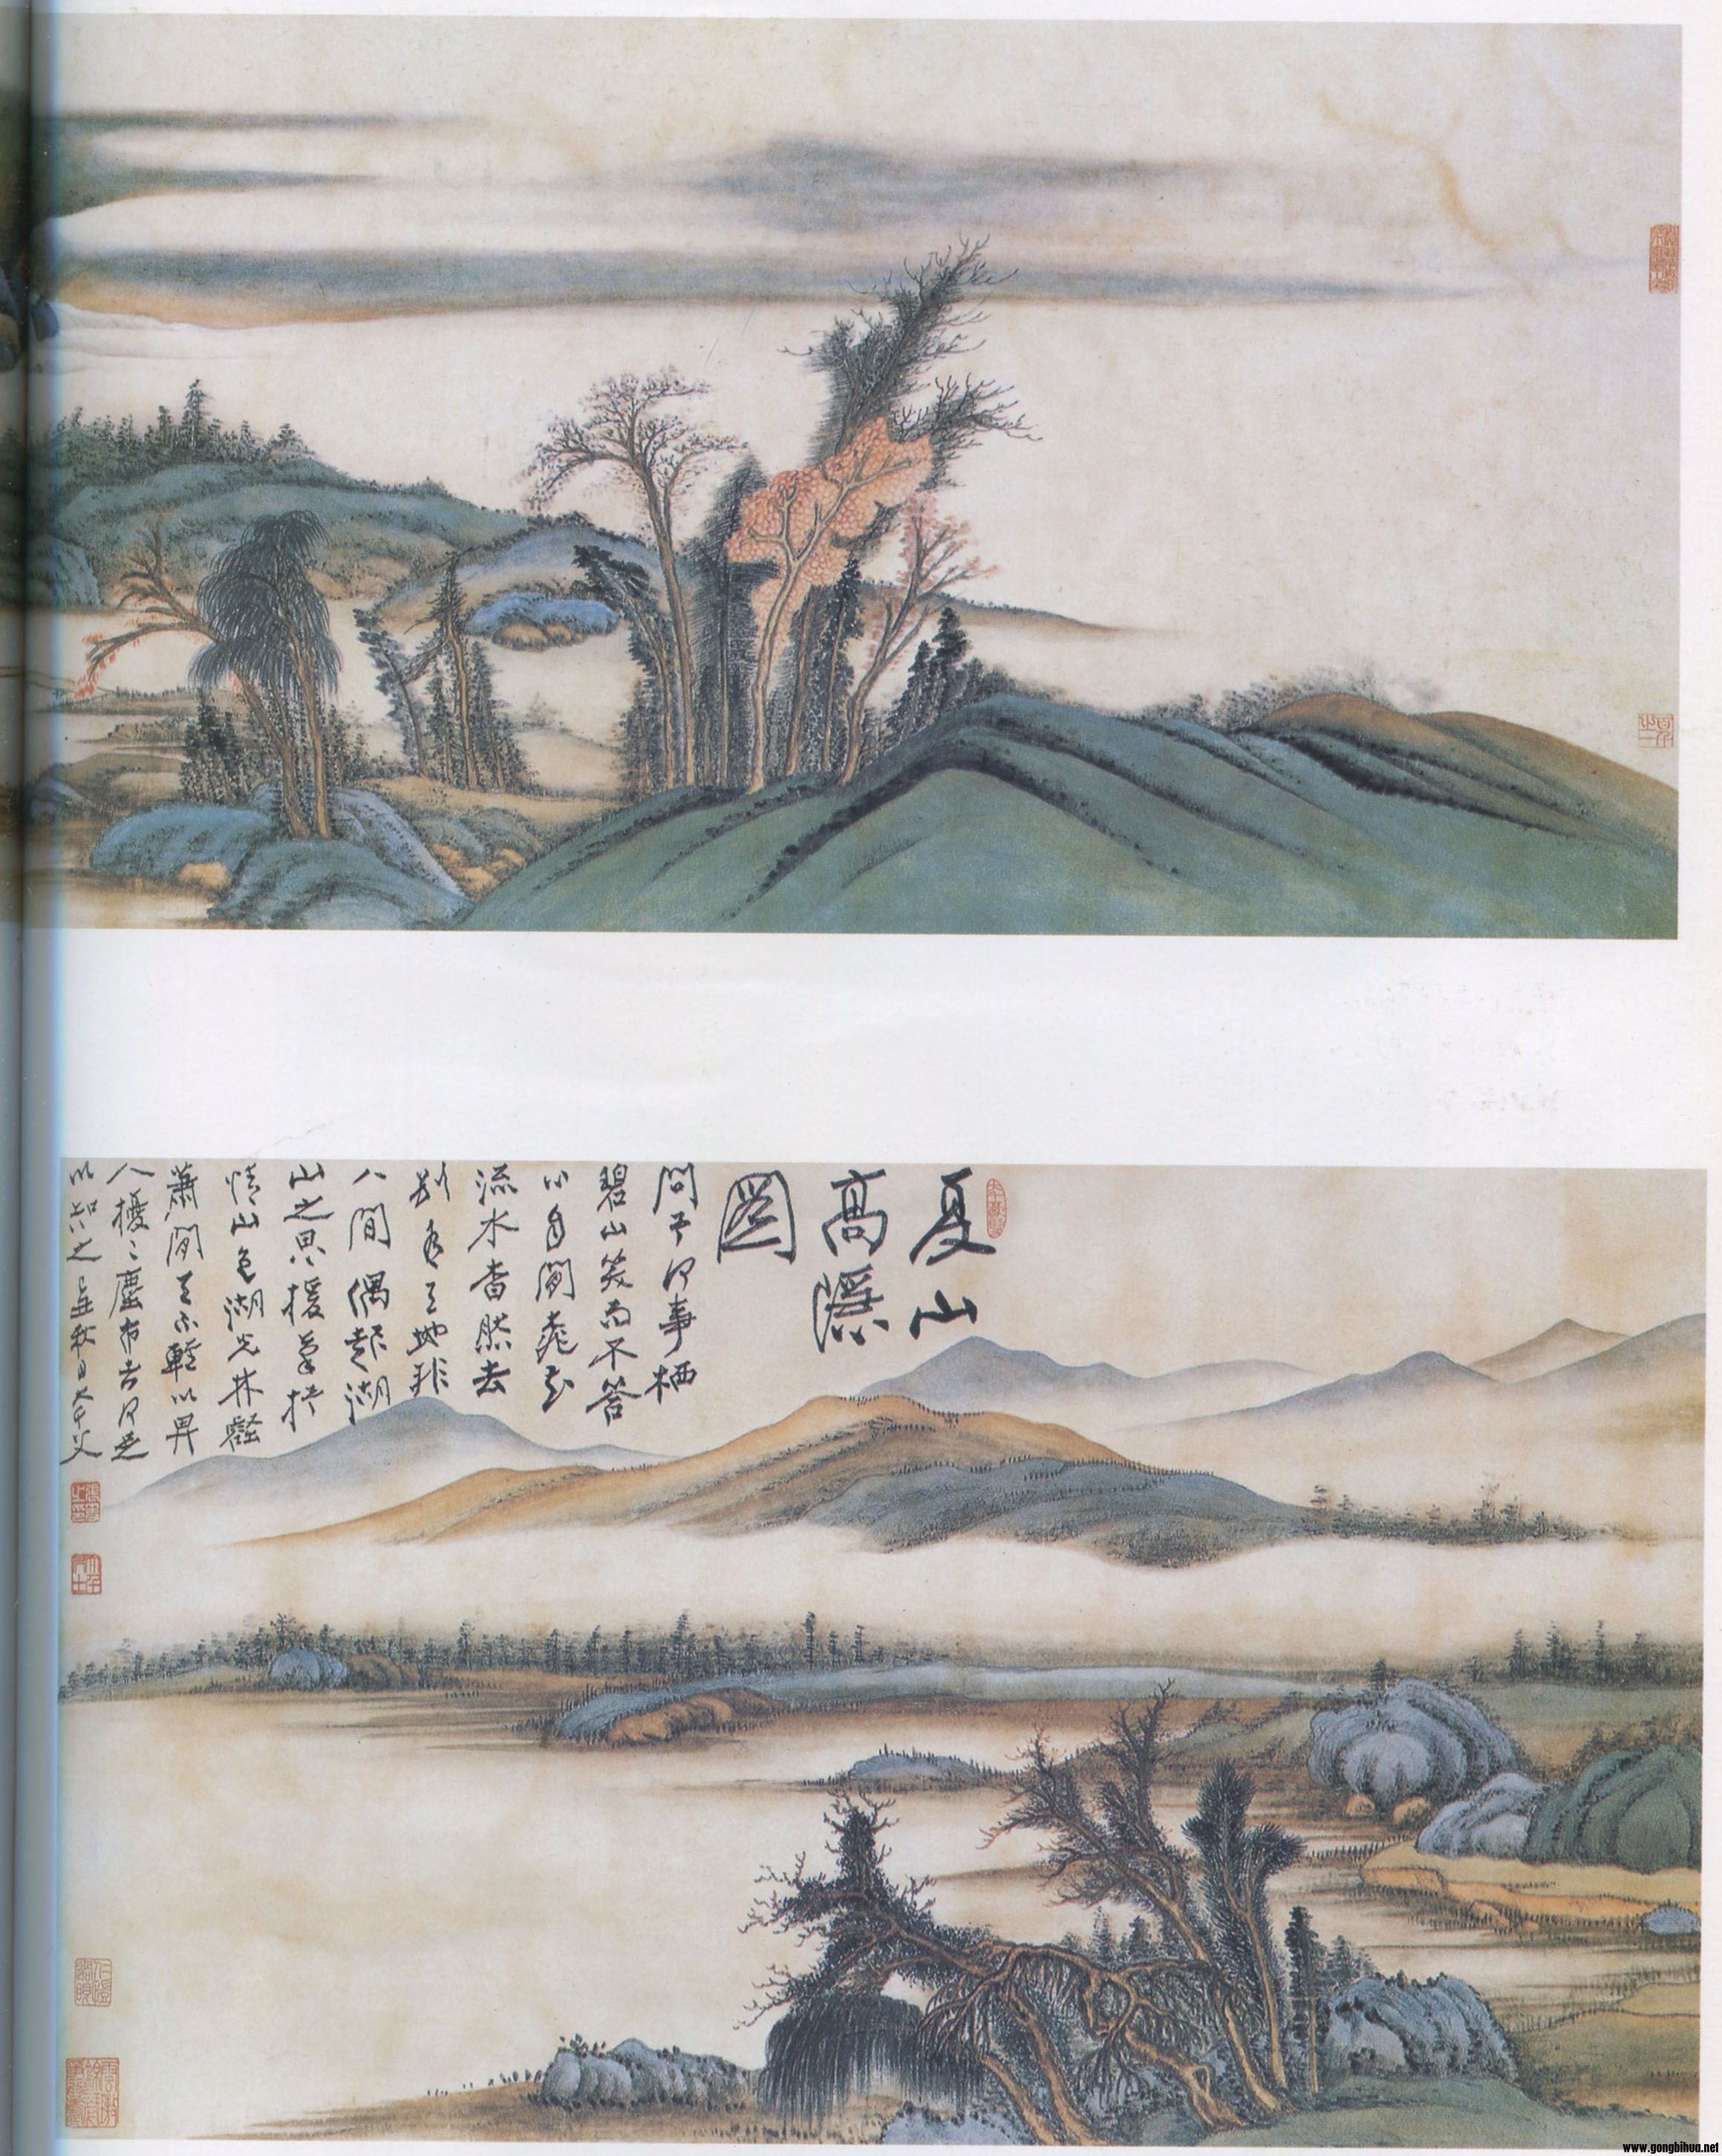 夏山
高隱
圖
問予何事栖
碧山笑而不答
心自閒桃花
流水杳然去
別有天地非
人間偶起湖
山之思援筆
情山色湖光林壑
蕭閒天不輕以畀
人擾〻塵市者何足
以知之 秋日大千父
www.gongbihua.net